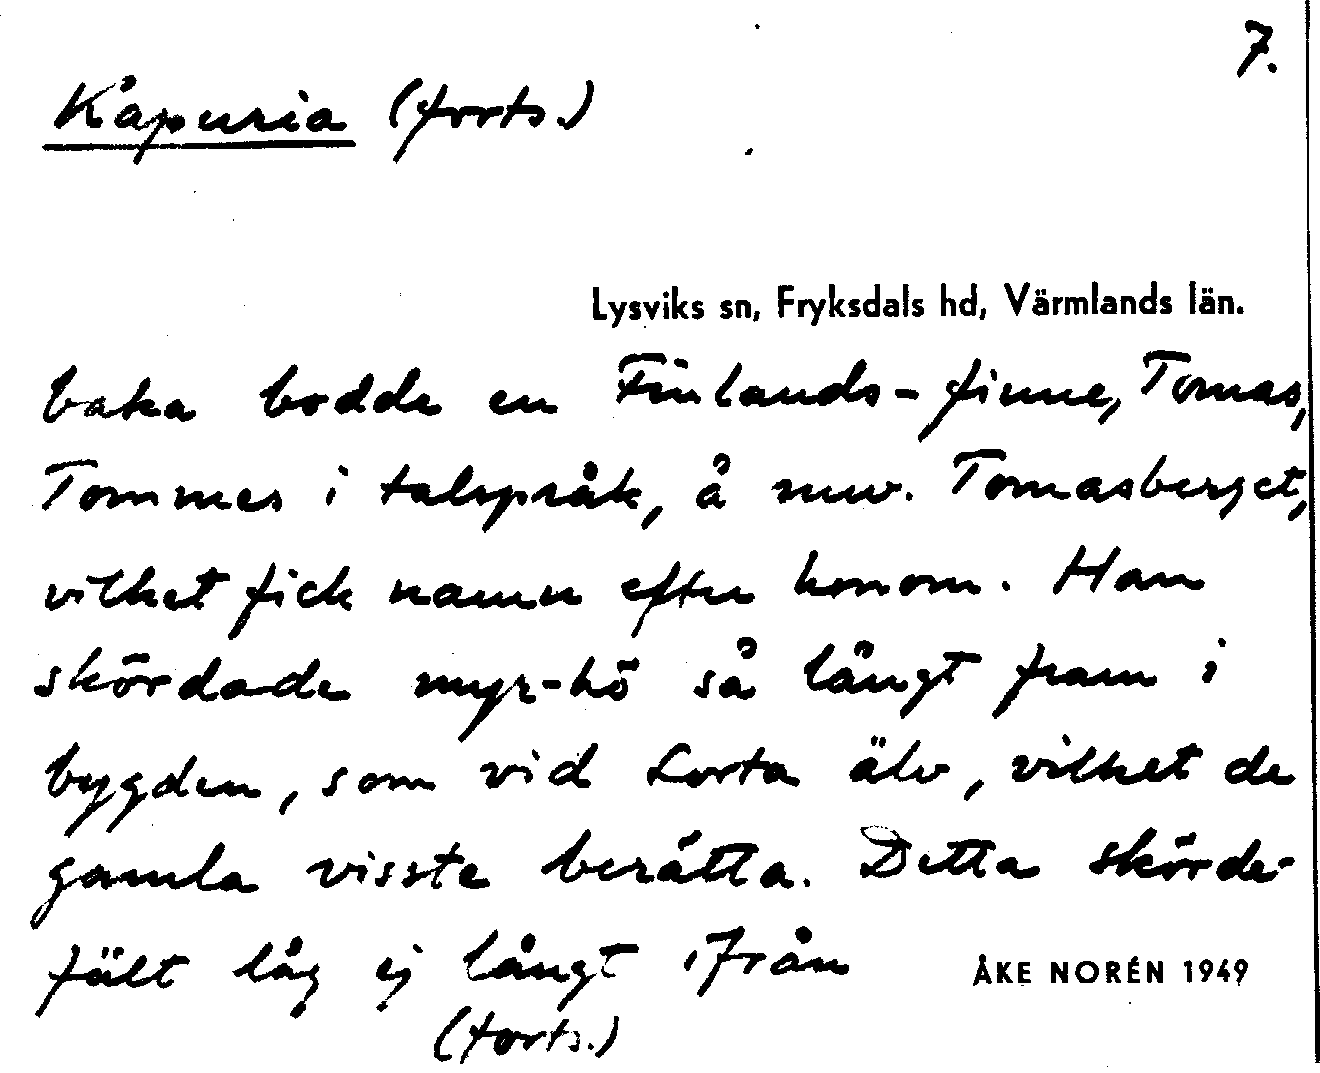 7.
Kápuria (forts.)
Lysviks sn, Fryksdals hd, Värmlands län.
baka bodde en Finlands-finne, Tomas,
Tommes i talspråk, å nuv. Tomasberget,
vilket fick namn efter honom. Han
skördade myr-hö så långt fram i
bygden, som vid Lorta älv, vilket de
gamla visste berätta. Detta skörde-
fält låg ej långt ifrån
ÅKE NORÉN 1949
(forts.)